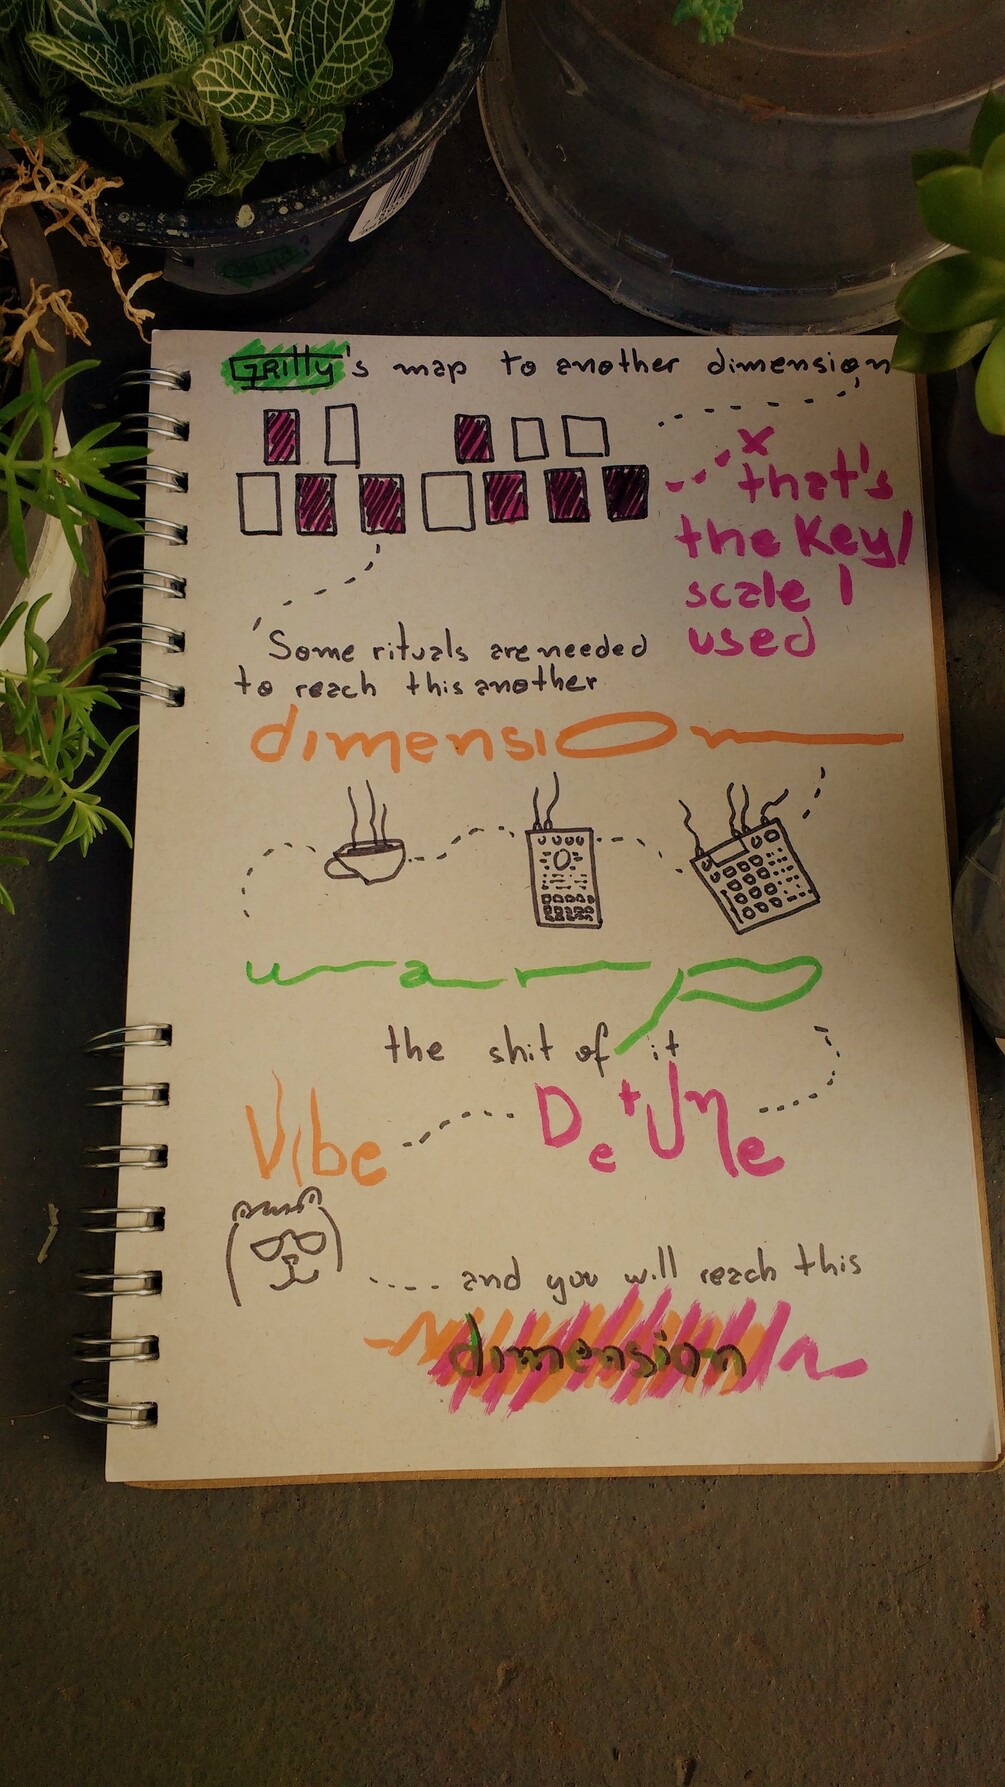 GRilly's map to another dimension
x
that's
the Key/
scale I
used
Some rituals are needed
to reach this another
dimension
warp
the shit of it
Vibe DetUne
and you will reach this
dimension